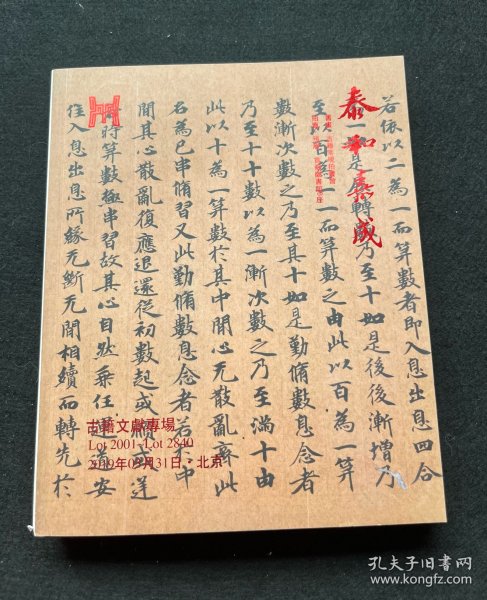 若依以二為一而算數者即入息出息四合
一如是展轉乃至十如是後後漸增乃
至以百為一一而算數之由此以百為一算
數漸次數之乃至其十如是勤脩數息念者
乃至十十數以為一漸次數之乃至滿十由
此以十為一算數於其中間心无散亂齊此
名為已串脩習又此勤脩數息念者若於中
間其心散亂復應退還從初數起或順或逆
時算數極串習故其心自然乘任運道安
住入息出息所緣无斷无間相續而轉先於
泰和嘉成
古籍文獻專場
Lot 2001-Lot 2840
2019年03月31日，北京
孔夫子旧书网
www.kongfz.com